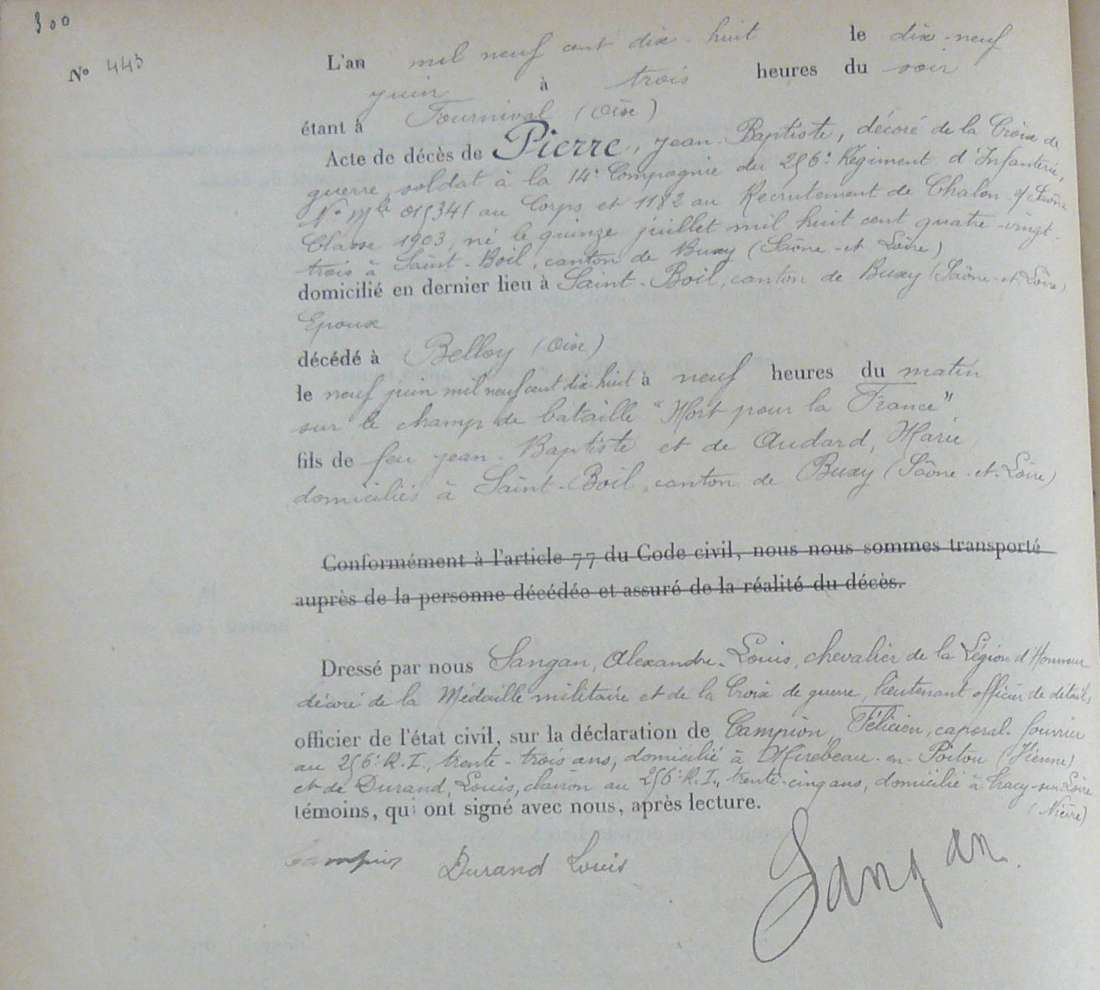 300
No 443
L'an mil neuf cent dix-huit le dix-neuf
juin à trois heures du soir
étant à Fournival (Oise)
Acte de décès de Pierre, Jean-Baptiste, décoré de la Croix de
guerre, soldat à la 14e Compagnie du 256e Régiment d'Infanterie,
No Mle 015341 au Corps et 1182 au Recrutement de Chalon s/ Saône
Classe 1903, né le quinze juillet mil huit cent quatre-vingt-
trois à Saint-Boil, canton de Buxy (Saône-et-Loire)
domicilié en dernier lieu à Saint-Boil, canton de Buxy (Saône-et-Loire)
Epoux
décédé à Belloy (Oise)
le neuf juin mil neuf cent dix huit à neuf heures du matin
sur le champ de bataille "Mort pour la France".
fils de feu Jean-Baptiste et de Audard, Marie
domiciliés à Saint-Boil, canton de Buxy (Saône-et-Loire)
Conformément à l'article 77 du Code civil, nous nous sommes transporté
auprès de la personne décédée et assuré de la réalité du décès.
Dressé par nous Sangan, Alexandre-Louis, chevalier de la Légion d'Honneur
décoré de la Médaille militaire et de la Croix de guerre, lieutenant officier de détails
officier de l'état civil, sur la déclaration de Campion, Félicien, caporal fourrier
au 256e R.I., trente-trois ans, domicilié à Mirebeau-en-Poitou (Vienne)
et de Durand, Louis, clairon au 256e R.I., trente-cinq ans, domicilié à Tracy-sur-Loire
(Nièvre)
témoins, qui ont signé avec nous, après lecture.
Campion Durand Louis Sangan